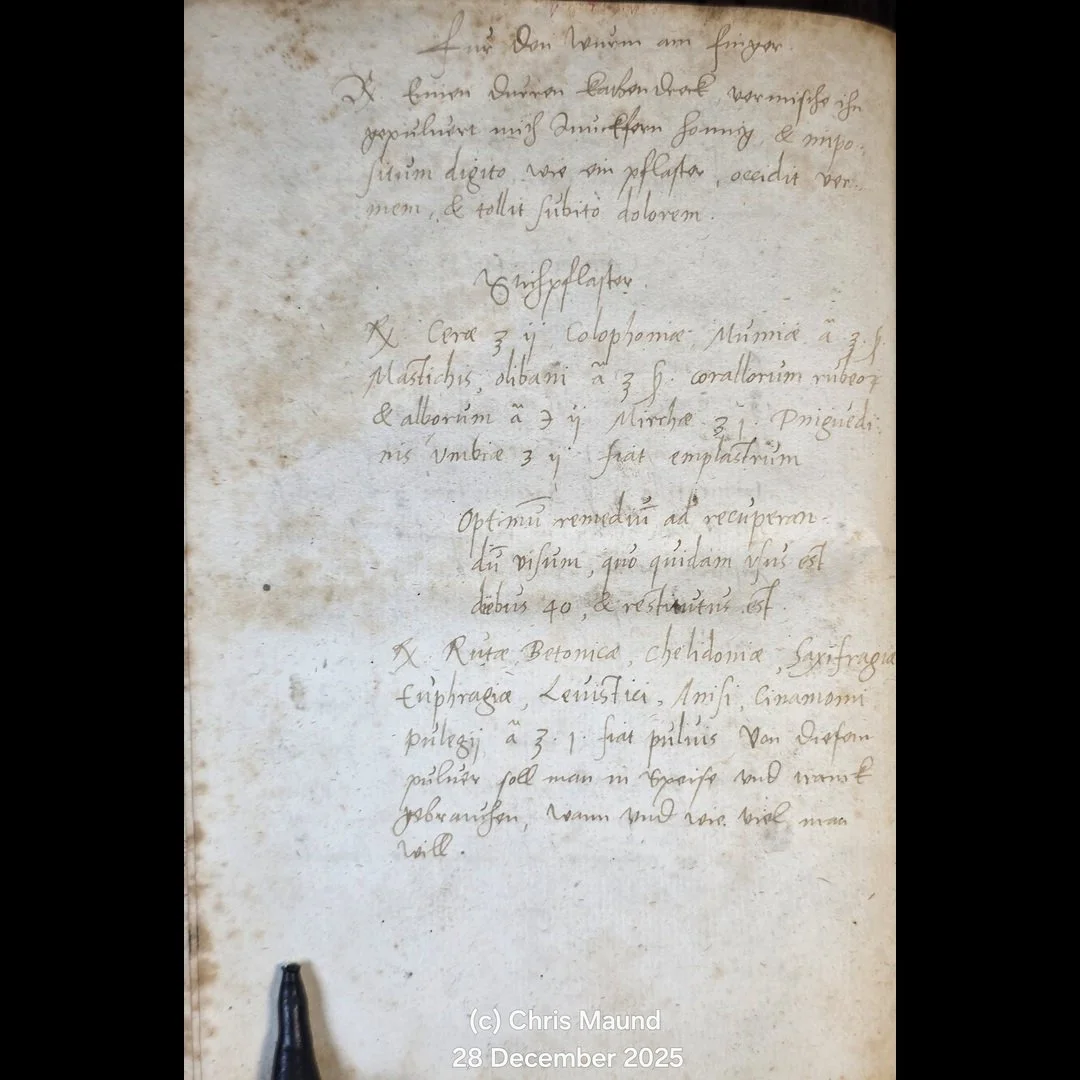 Fur den wurm am finger.
℞. Einen durren katzendreck, vermische ihn
gepulvert mith Junckfern honnig, & impo-
situm digito, wie ein pflaster, occidit ver-
mem, & tollit subitò dolorem.
Stichpflaster.
℞. Ceræ ʒ ij Colophoniæ Mumiæ ã ʒ. ß.
Mastichis, olibani ã ʒ ß. corallorum rubeoꝝ
& alborum ã ℈ ij Mirrhæ ʒ j. Pniguedi-
nis Vmbræ ʒ ij fiat emplastrum
Optimū remediū ad recuperan-
dū visum, quo quidam vsus est
diebus 40, & restitutus est.
℞. Rutæ, Betonicæ, Chelidoniæ, Saxifragiæ
Euphragiæ, Levistici, Anisi, Cinamomi
pulegij ã ʒ. j. fiat pulvis Von diesem
pulver soll man in Speise und tranck
gebrauchen, wann und wie viel man
will.
(c) Chris Maund
28 December 2025